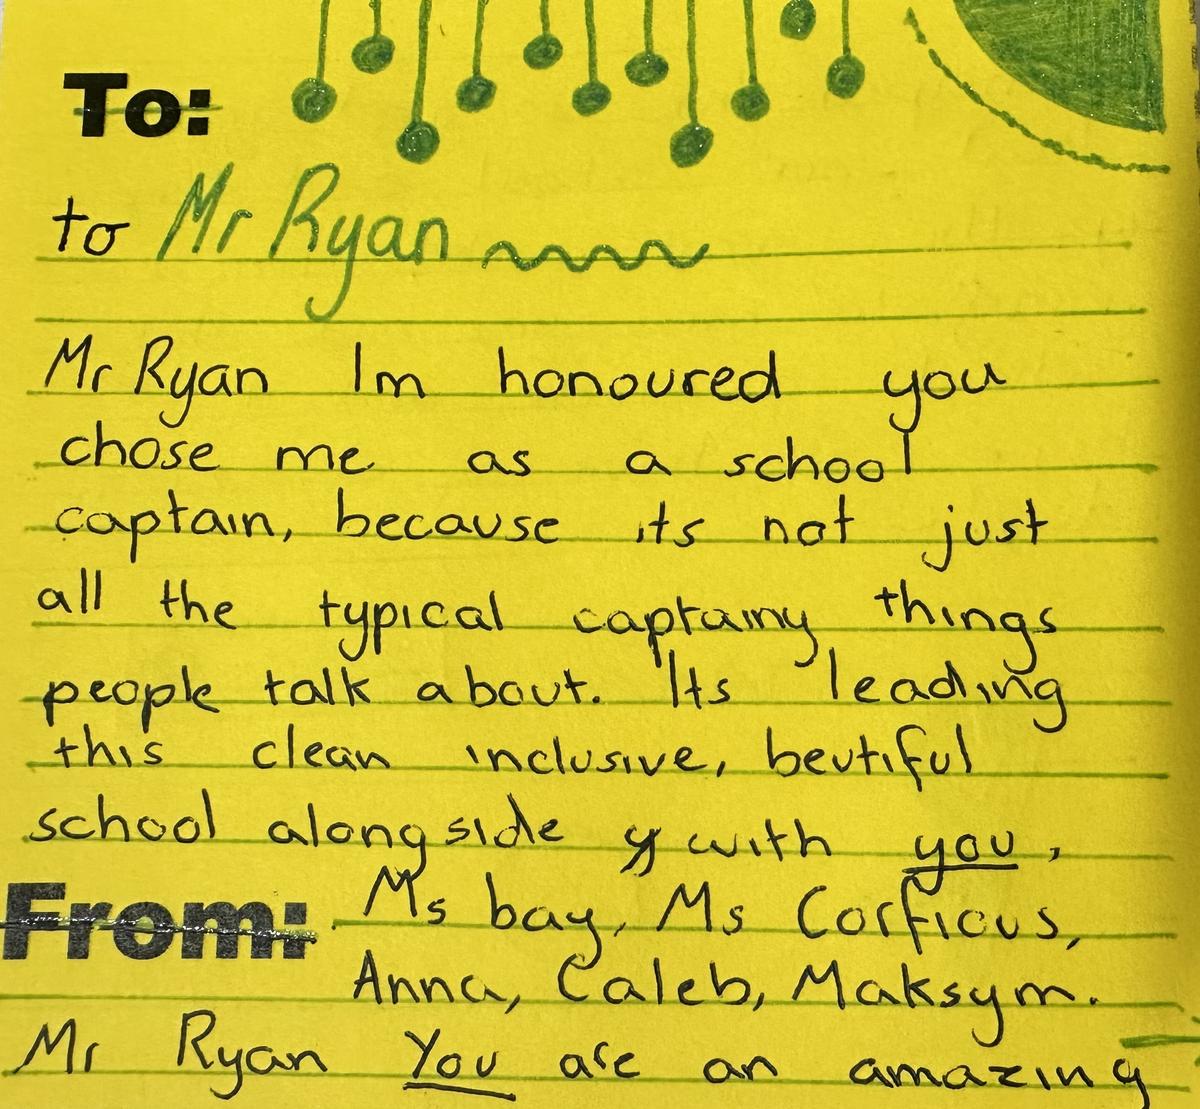 To:
to Mr Ryan
Mr Ryan Im honoured you
chose me as a school
captain, because its not just
all the typical captainy things
people talk about. Its leading
this clean inclusive, beutiful
school alongside with you,
From: Ms bay, Ms Corficus,
Anna, Caleb, Maksym.
Mr Ryan You are an amazing